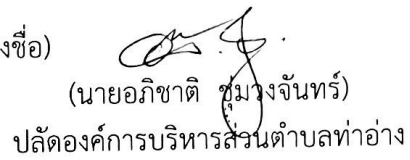 งชื่อ)
(นายอภิชาติ ชุ่มวงจันทร์)
ปลัดองค์การบริหารส่วนตำบลท่าอ่าง